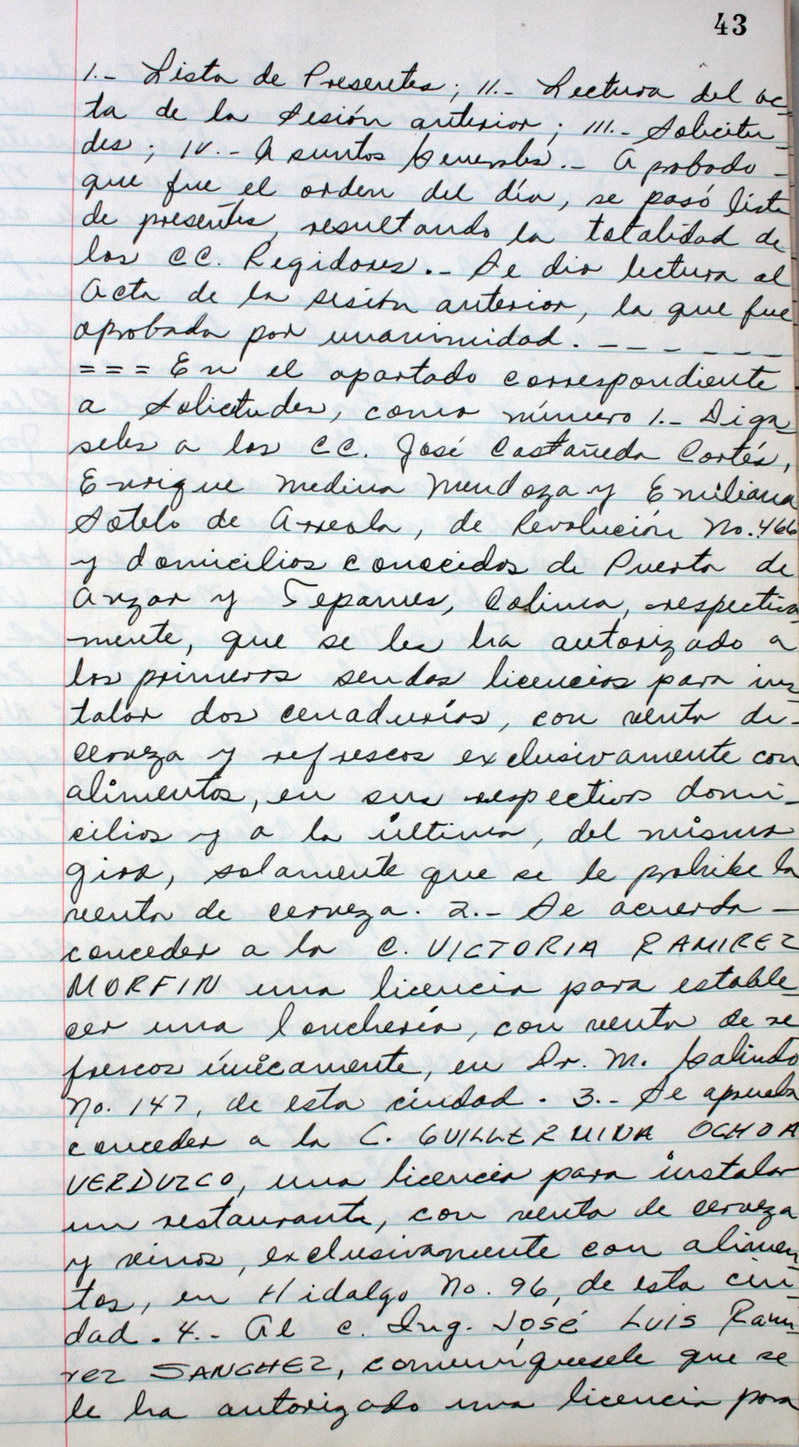 43
1.- Lista de Presentes; II.- Lectura del ac-
ta de la sesión anterior; III.- Solicitu-
des; IV.- Asuntos Generales.- Aprobado -
que fue el orden del día, se pasó lista
de presentes, resultando la totalidad de
los CC. Regidores.- Se dio lectura al
Acta de la sesión anterior, la que fue
aprobada por unanimidad. - - - - - -
=== En el apartado correspondiente
a Solicitudes, como número 1.- Díga-
seles a los CC. José Castañeda Cortés,
Enrique Medina Mendoza y Emiliana
Sotelo de Arreola, de Revolución No. 466
y domicilios conocidos de Puerta de
Anzar y Tepames, Colima, respectiva-
mente, que se les ha autorizado a
los primeros sendas licencias para ins-
talar dos cenadurías, con venta de-
cerveza y refrescos exclusivamente con
alimentos, en sus respectivos domi-
cilios y a la última, del mismo
giro, solamente que se le prohibe la
venta de cerveza. 2.- Se acuerda -
conceder a la C. VICTORIA RAMIREZ
MORFIN una licencia para estable-
cer una lonchería, con venta de re
frescos únicamente, en Dr. M. Galindo
No. 147, de esta ciudad. 3.- Se aprueba
conceder a la C. GUILLERMINA OCHOA
VERDUZCO, una licencia para instalar
un restaurante, con venta de cerveza
y vinos, exclusivamente con alimen-
tos, en Hidalgo No. 96, de esta ciu-
dad. 4.- Al C. Ing. JOSÉ LUIS Ramí-
rez SANCHEZ, comuníquesele que se
le ha autorizado una licencia para